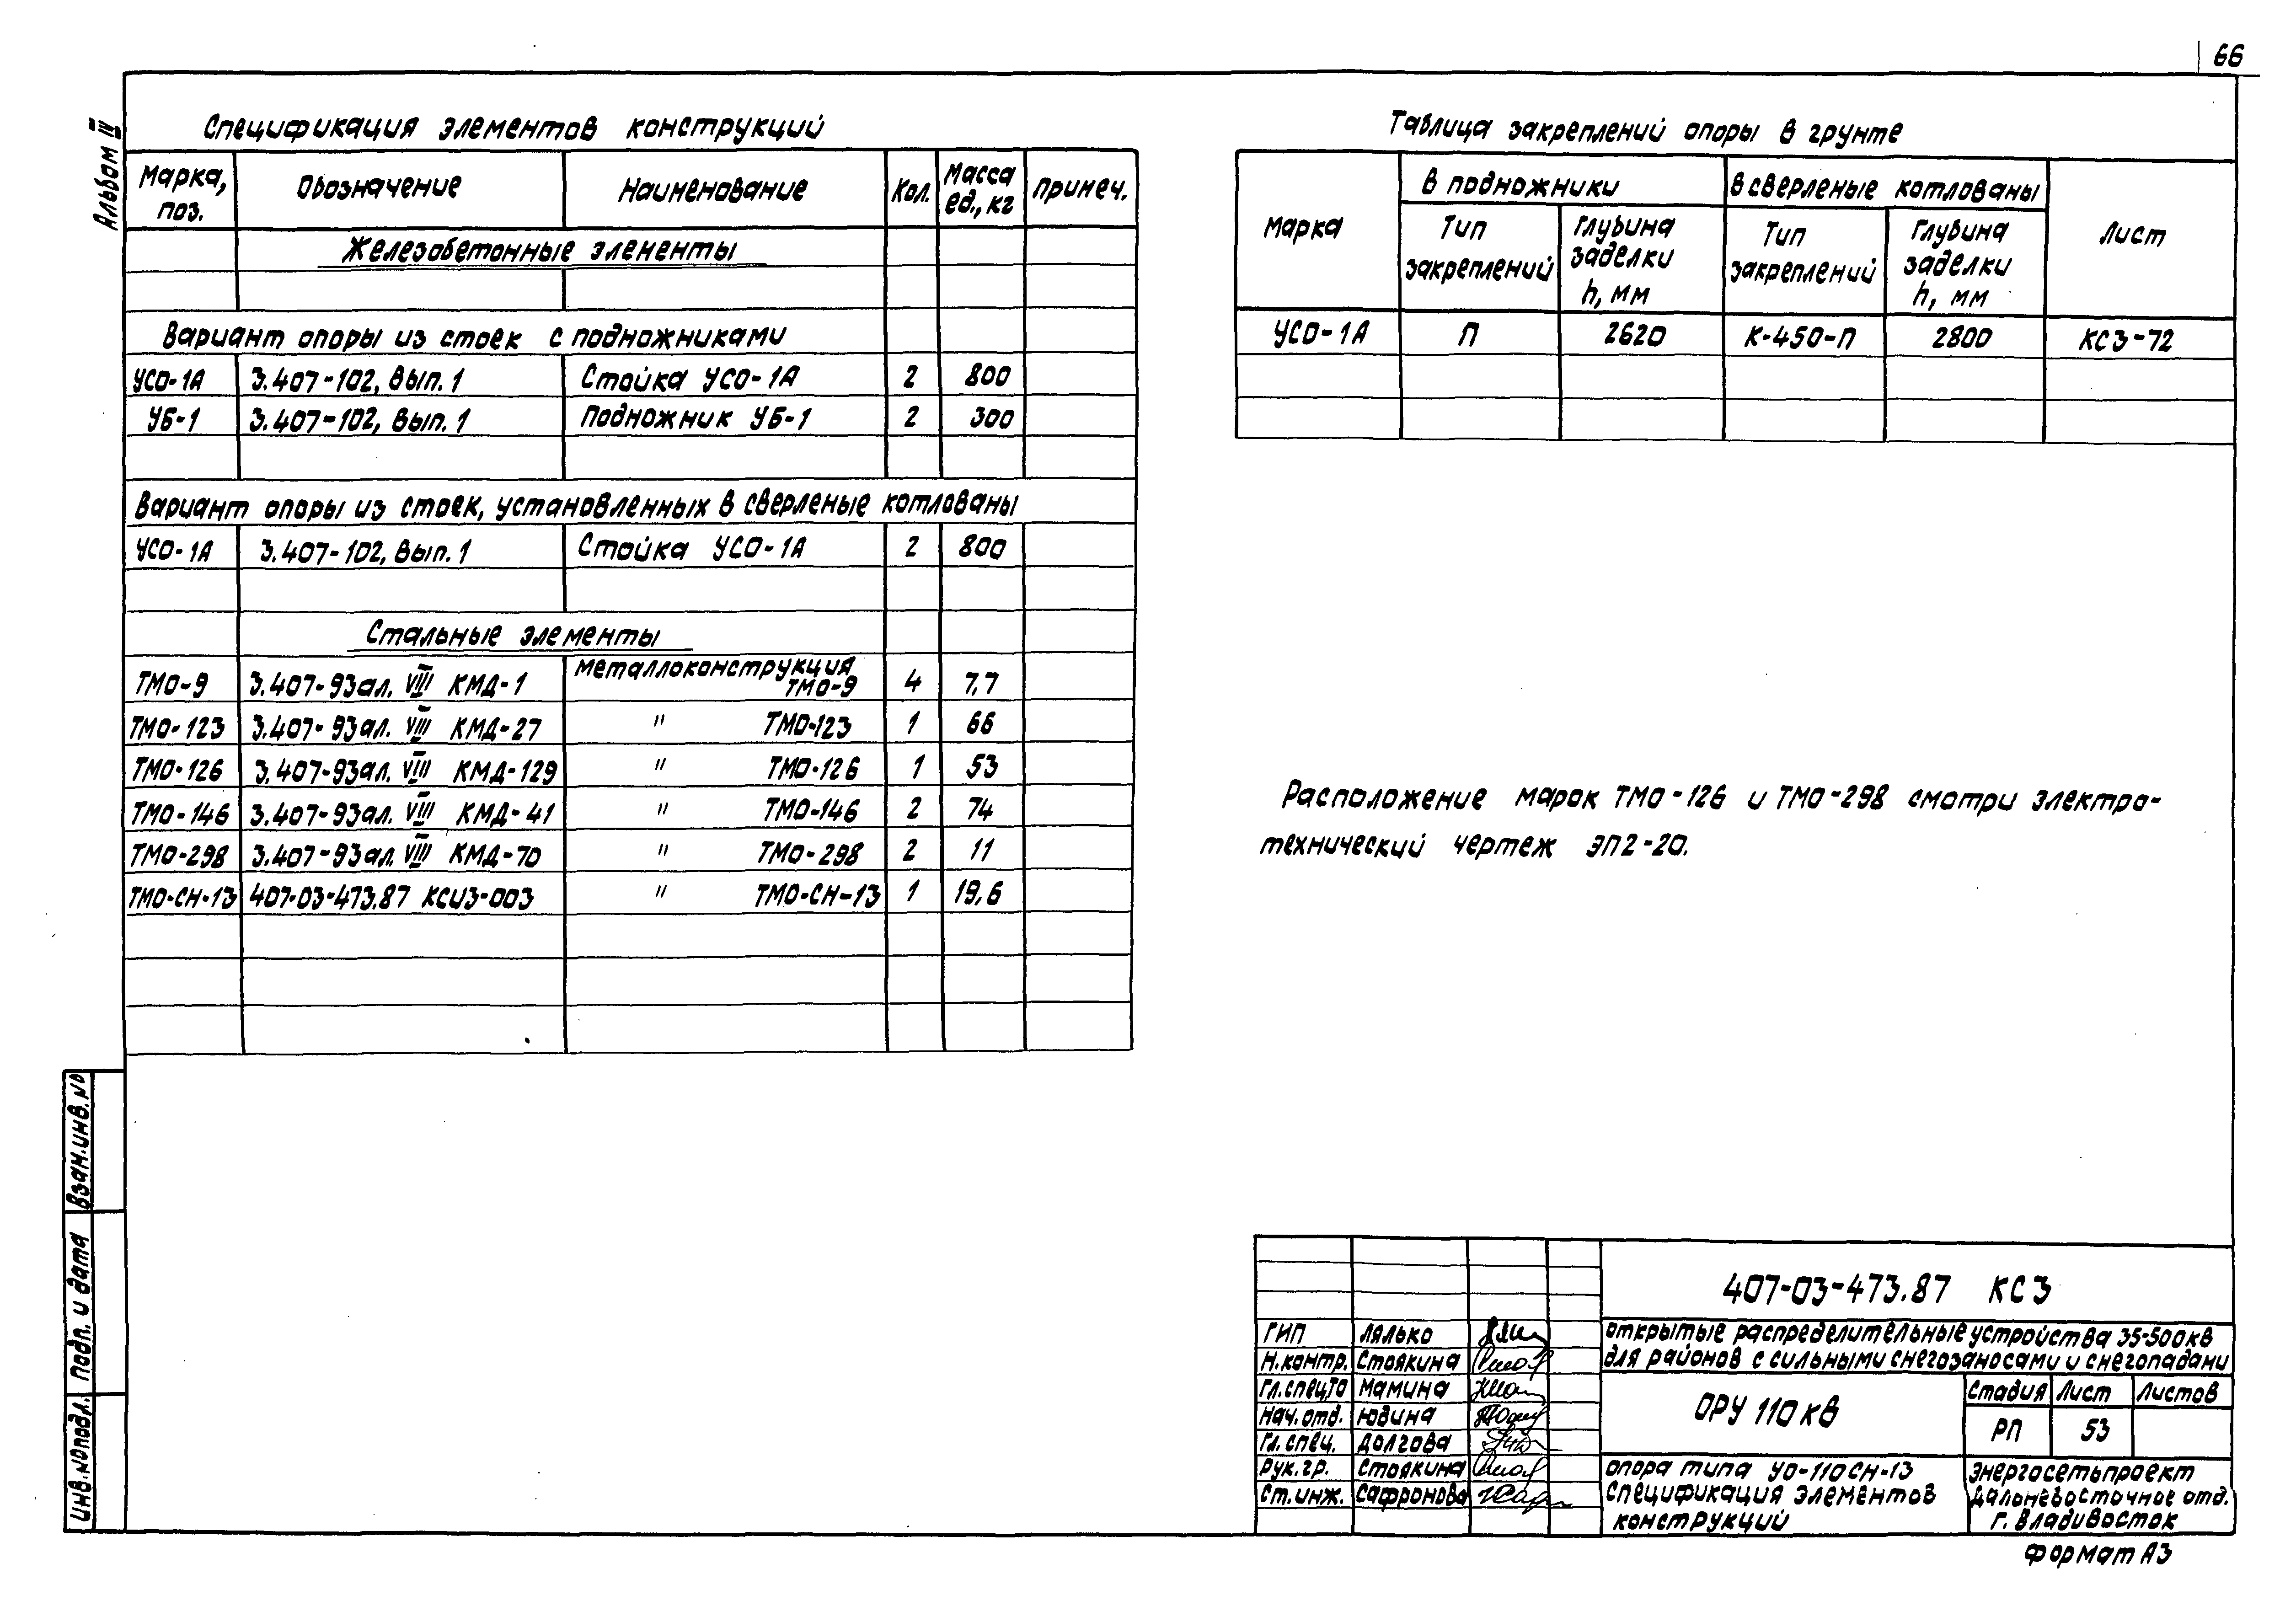 66
Альбом IV
Спецификация элементов конструкций
Марка, поз. Обозначение Наименование Кол. Масса ед., кг Примеч.
Железобетонные элементы
Вариант опоры из стоек с подножниками
УСО-1А 3.407-102, вып. 1 Стойка УСО-1А 2 800
УБ-1 3.407-102, вып. 1 Подножник УБ-1 2 300
Вариант опоры из стоек, установленных в сверленые котлованы
УСО-1А 3.407-102, вып. 1 Стойка УСО-1А 2 800
Стальные элементы
ТМО-9 3.407-93 ал. VIII КМД-1 Металлоконструкция ТМО-9 4 7,7
ТМО-123 3.407-93 ал. VIII КМД-27 " ТМО-123 1 66
ТМО-126 3.407-93 ал. VIII КМД-129 " ТМО-126 1 53
ТМО-146 3.407-93 ал. VIII КМД-41 " ТМО-146 2 74
ТМО-298 3.407-93 ал. VIII КМД-70 " ТМО-298 2 11
ТМО-СН-13 407-03-473.87 КСИЗ-003 " ТМО-СН-13 1 19,6
Таблица закреплений опоры в грунте
Марка В подножники В сверленые котлованы Лист
Тип закреплений Глубина заделки h, мм Тип закреплений Глубина заделки h, мм
УСО-1А П 2620 К-450-П 2800 КС3-72
Расположение марок ТМО-126 и ТМО-298 смотри электро-
технический чертеж ЭП2-20.
Взам. инв. №
Подп. и дата
Инв. № подл.
407-03-473.87 КС3
Открытые распределительные устройства 35-500кВ
для районов с сильными снегозаносами и снегопадами
ГИП Лялько
Н.контр. Стоякина
Гл.спец.ТО Мамина
Нач. отд. Юдина
Гл. спец. Долгова
Рук. гр. Стоякина
Ст. инж. Сафронова
ОРУ 110 кВ
Стадия Лист Листов
РП 53
Опора типа УО-110СН-13
Спецификация элементов
конструкций
Энергосетьпроект
Дальневосточное отд.
г. Владивосток
Формат А3